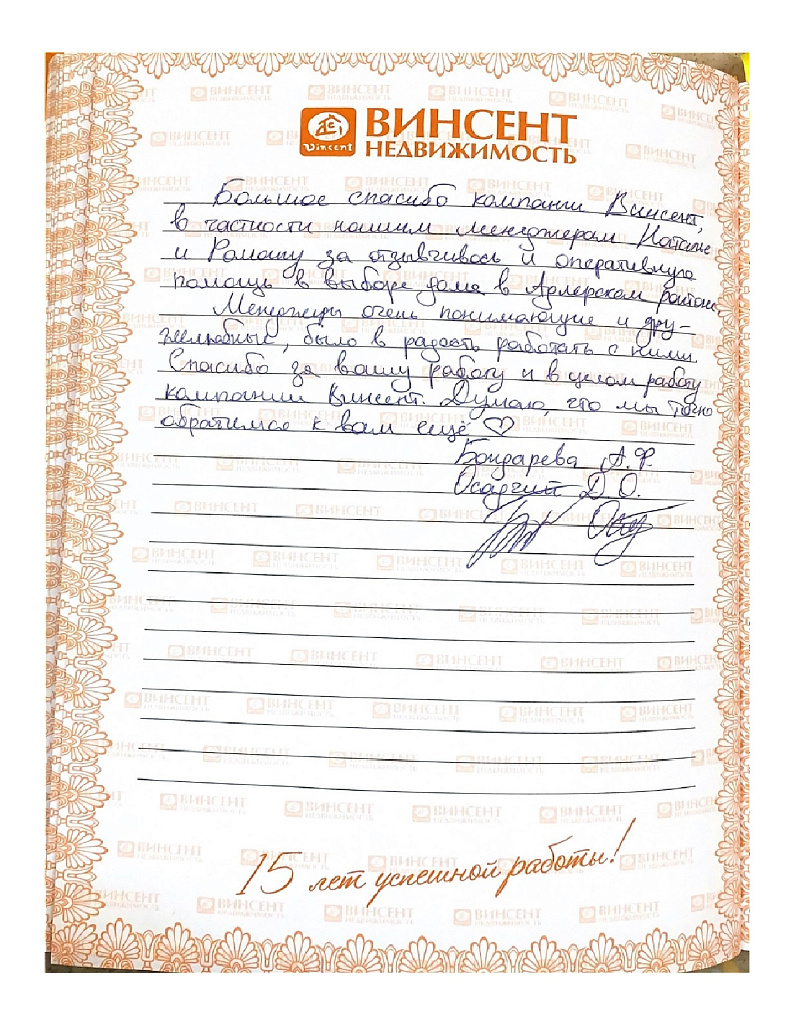 Vincent
ВИНСЕНТ
НЕДВИЖИМОСТЬ
Большое спасибо компании Винсент,
в частности нашим менеджерам Наталье
и Роману за отзывчивось и оперативную
помощь в выборе дома в Адлерском районе.
Менеджеры очень понимающие и дру-
желюбные, было в радость работать с ними.
Спасибо за вашу работу и в целом работу
компании Винсент. Думаю, что мы точно
обратимся к вам ещё ♡
Бондарева А.Ф.
Осадчий Д.О.
15 лет успешной работы!